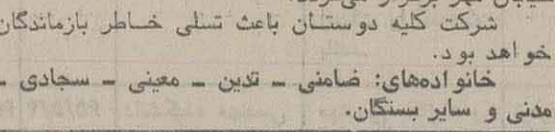 شرکت کلیه دوستان باعث تسلی خاطر بازماندگان
خواهد بود.
خانواده‌های: ضامنی ـ تدین ـ معینی ـ سجادی ـ
مدنی و سایر بستگان.